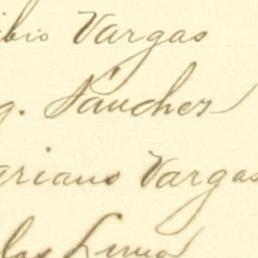 ibio Vargas
g. Sanches
ariano Vargas
los Luna